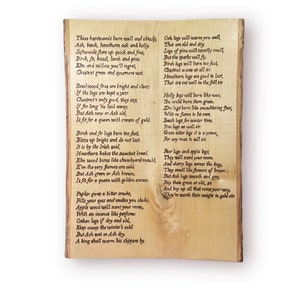 These hardwoods burn well and slowly,
Ash, beech, hawthorn oak and holly.
Softwoods flare up, quick and fine,
Birch, fir, hazel, larch and pine.
Elm and willow you'll regret,
Chestnut green and sycamore wet.

Beechwood fires are bright and clear
If the logs are kept a year
Chestnut's only good, they say,
If for long 'tis laid away.
But Ash new or Ash old,
Is fit for a queen with crown of gold.

Birch and fir logs burn too fast,
Blaze up bright and do not last
It is by the Irish said,
Hawthorn bakes the sweetest bread,
Elm wood burns like churchyard mould,
E'en the very flames are cold
But Ash green or Ash brown,
Is fit for a queen with golden crown.

Poplar gives a bitter smoke,
Fills your eyes and makes you choke.
Apple wood will scent your room,
With an incense like perfume.
Oaken logs if dry and old,
Keep away the winter's cold.
But Ash wet or Ash dry,
A king shall warm his slippers by.

Oak logs will warm you well,
That are old and dry
Logs of pine will sweetly smell,
But the sparks will fly.
Birch logs will burn too fast,
Chestnut scarce at all sir
Hawthorn logs are good to last,
That are cut well in the fall sir

Holly logs will burn like wax,
You could burn them green.
Elm logs burn like smouldering flax,
With no flame to be seen.
Beech logs for winter time,
Yew logs as well sir
Green elder logs it is a crime,
For any man to sell sir.

Pear logs and apple logs,
They will scent your room,
And cherry logs across the dogs,
They smell like flowers of broom.
But Ash logs smooth and grey,
Buy them green or old, sir
And buy up all that come your way,
They're worth their weight in gold sir.